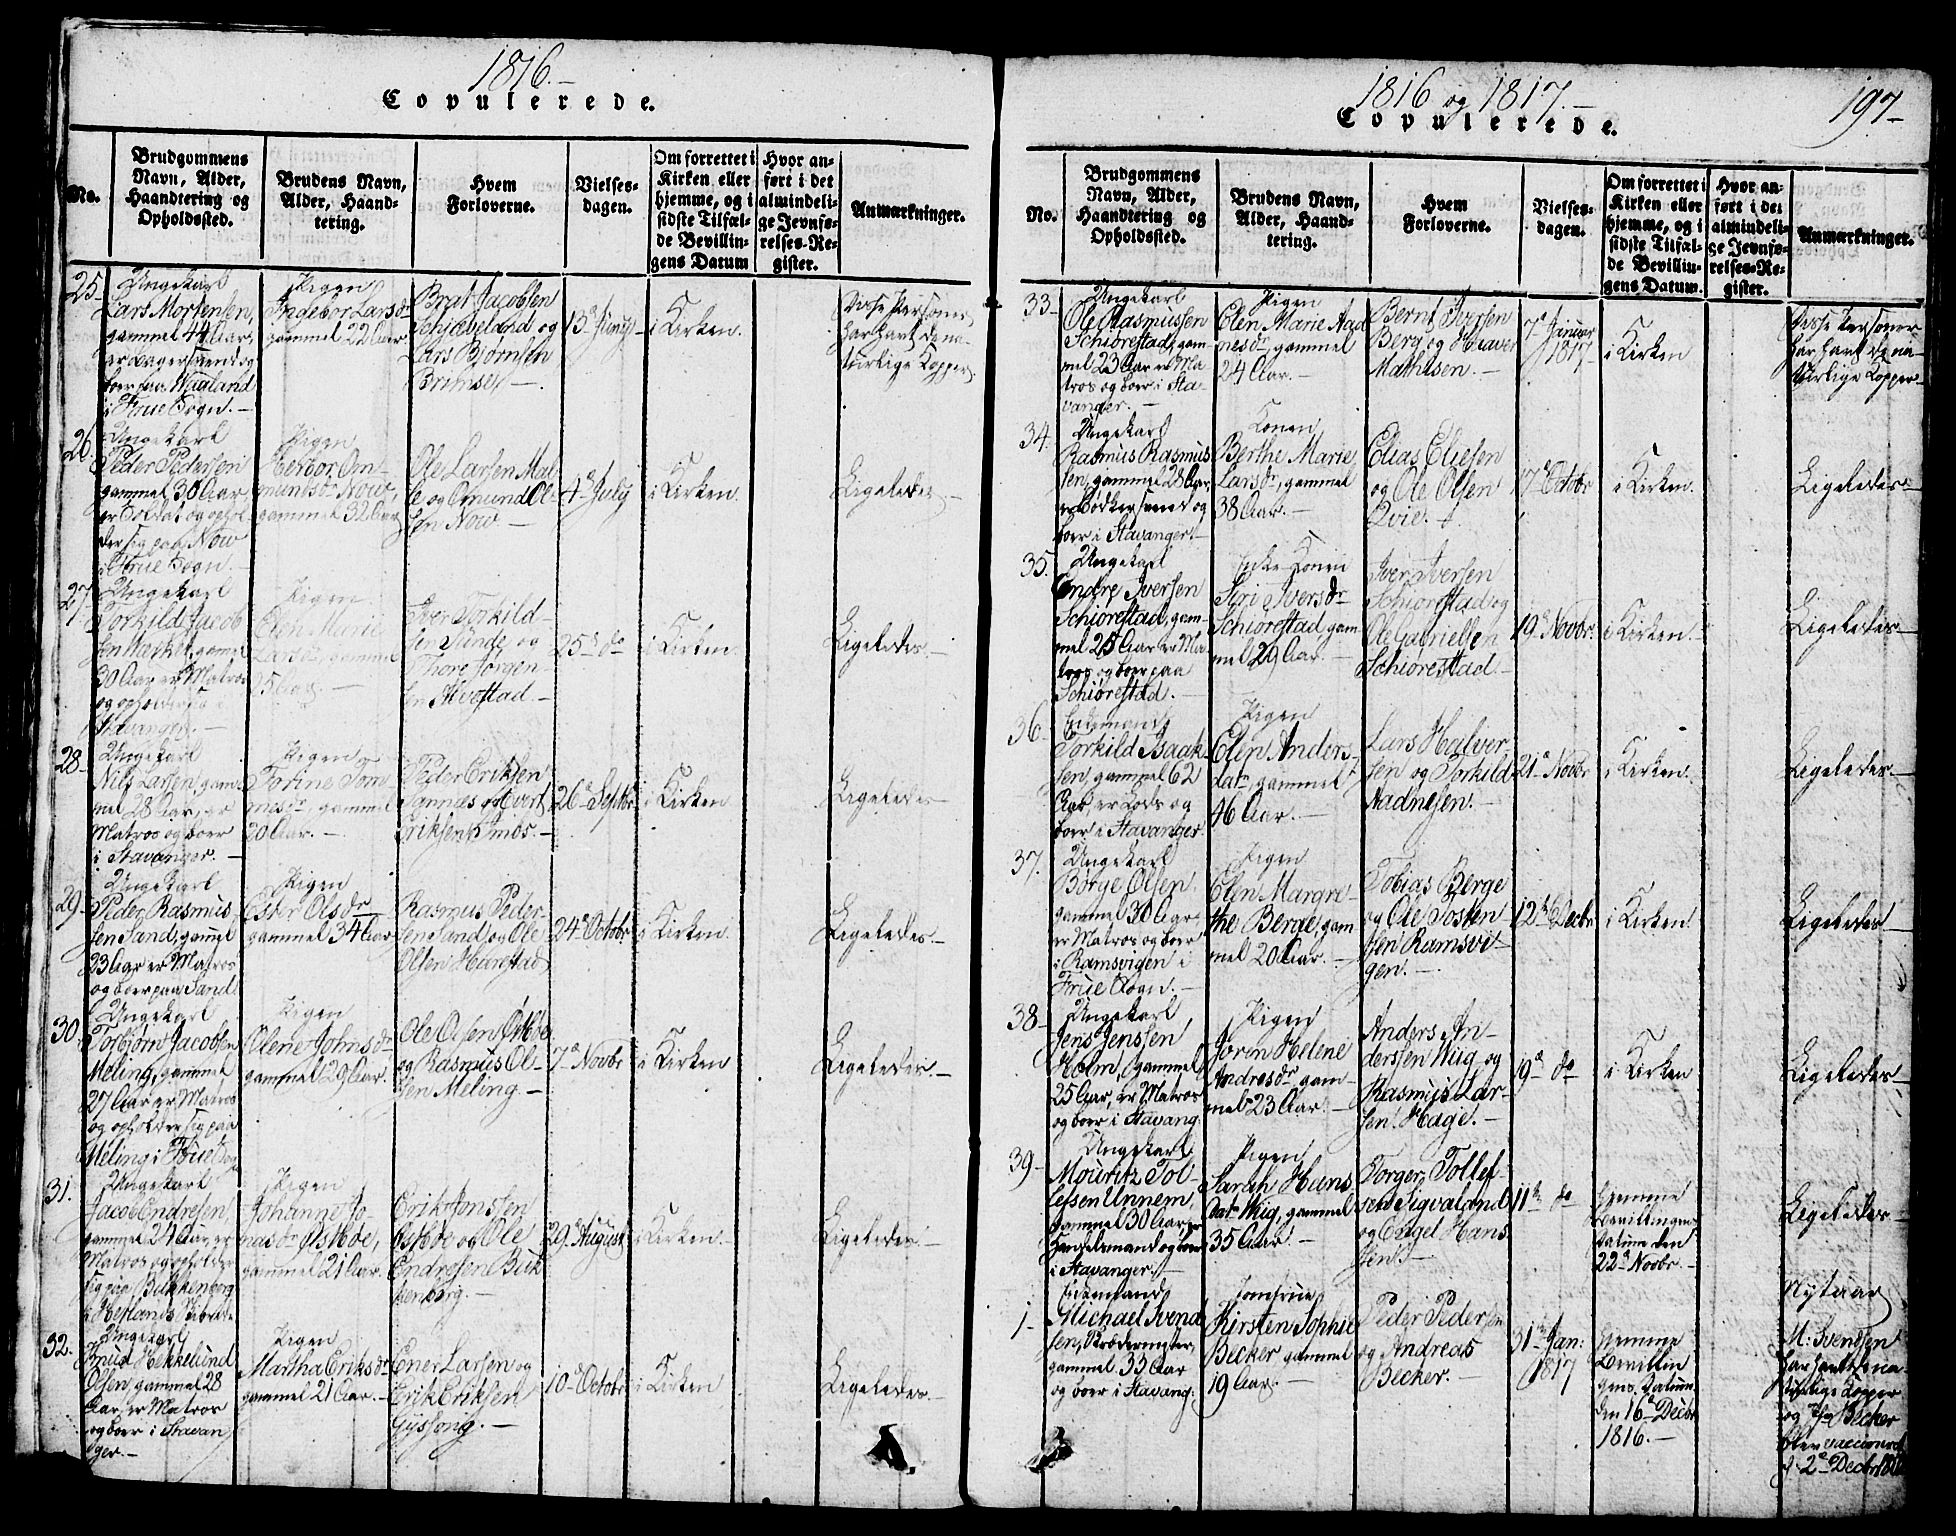 1816.-
Copulerede.
No.
Brudgommens
Navn, Alder,
Haandtering og
Opholdssted.
Brudens Navn,
Alder, Haand-
tering.
Hvem
Forloverne.
Vielses-
dagen.
Om forrettet i
Kirken eller
hjemme, og i
sidste Tilfæl-
de Bevillin-
gens Datum
Hvor an-
ført i det
almindeli-
ge Jevnfø-
relses-Re-
gister.
Anmærkninger.
25-
Ungekarl
Lars Mortensen,
gammel 44 Aar,
i Frue Sogn.-
Pigen
Ingebor Larsdr
gammel 22 Aar
Brat Jacobsen
Schiebeland og
Lars Bjørnsen
13de Juny
i Kirken.
Disse Personer
har havt de na-
turlige Kopper
26
Ungekarl
Peder Pedersen
gammel 30 Aar,
er Soldat og ophol-
der sig paa Now
i Frue Sogn.-
Pigen
Herbor Om-
mundsdr Now,
gammel 32 Aar
Ole Larsen Mal-
le og Omund Ole
sen Now-
4de July
i Kirken.
Ligeledes-
27-
Ungekarl
Torkild Jacob
sen gamel
30 Aar er Matros
og opholder sig i
Stavanger.-
Pigen
Elen Marie
Larsdr, gammel
25 Aar.-
Iver Torkild-
sen Sunde og
Thore Jorgen-
sen Alvestad-
25de do
i Kirken.
Ligeledes.-
28-
Ungekarl
Nils Larsen, gam-
mel 28 Aar, er
Matros og boer
i Stavanger.-
Pigen
Torine Tom
mesdr, gammel
20 Aar.-
Peder Eriksen
og Evert
Eriksen
26de Septbr
i Kirken
Ligeledes-
29-
Ungekarl
Peder Rasmus-
sen Sand, gamel
23 Aar er Matros
og boer paa Sand
Pigen
Ester Olsdr
gammel 34 Aar
Rasmus Peder-
sen Sand og Ole
Olsen Hanstad
24de Octobr
i Kirken.
Ligeledes.-
30.
Ungekarl
Torbiørn Jacobsen
Meling, gammel
27 Aar er Matros
og opholder sig paa
Meling i Frue Sogn
Pigen
Olene Johnsdr
gammel 29 Aar.
Ole Olsen
og Rasmus Ole
sen Meling-
7de Novbr
i Kirken
Ligeledes.-
31.
Ungekarl
Jacob Endresen,
gammel 24 Aar, er
Matros og opholder
sig paa Bukkenberg
i Hetlands
Pigen
Johanne Jo
nasdr
gammel 21 Aar.
Erik Jonssen
og Ole
Endresen Buk
kenberg.-
29de August
i Kirken.
Ligeledes.-
32.
Ungekarl
Knud Hekkelund
Olsen, gammel 28
Aar, er Matros
og boer i Stavan
ger.-
Pigen
Martha Eriksdr
gammel 21 Aar.-
Ener Larsen og
Erik Eriksen
10de Octobr
i Kirken
Ligeledes.-
1816 og 1817.-
197-
Copulerede.
No.
Brudgommens
Navn, Alder,
Haandtering og
Opholdssted.
Brudens Navn,
Alder, Haand-
tering.
Hvem
Forloverne.
Vielses-
dagen.
Om forrettet i
Kirken eller
hjemme, og i
sidste Tilfæl-
de Bevillin-
gens Datum.
Hvor an-
ført i det
almindeli-
ge Jevnfø-
relses-Re-
gister.
Anmærkninger.
33-
Ungekarl
Ole Rasmussen
Schiørestad, gam-
mel 23 Aar er Ma
tros og boer i Sta-
vanger.-
Pigen
Elen Marie Aad
nesdr, gammel
24 Aar.-
Bernt Iversen
Berg og Hraver
Mathisen.-
7de Januar
1817-
i Kirken
Disse Personer
har havt de na
turlige Kopper-
34.
Ungekarl
Rasmus Rasmus
sen, gammel 28 Aar,
er Bødkersvend og
boer i Stavanger!-
Konen
Berthe Marie
Larsdr, gammel
38 Aar.-
Elias Eliesen
og Ole Olsen
Qvie.
17de Octobr
i Kirken.
Ligeledes-
35.
Ungekarl
Endre Iversen
Schiørestad, gam-
mel 25 Aar er Ma
tros og boer paa
Schiørestad.
Enke Konen
Siri Iversdr
Schiørestad, gam
mel 29 Aar.-
Iver Iversen
Schiørestad og
Ole Gabrielsen
Schiørestad.-
19de Novbr.
i Kirken.-
Ligeledes-
36-
Enkemand
Torkild Isaak-
sen, gammel 62
Aar, er Lods og
boer i Stavanger.
Pigen
Elen Anders-
datr gammel
46 Aar.-
Lars Halver-
sen og Torkild
Aadnesen.-
21de Novbr
i Kirken.
Ligeledes-
37.
Ungekarl
Børge Olsen,
gammel 30 Aar
er Matros og boer
i Ramsvigen i
Frue Sogn.-
Pigen
Elen Margre-
the Berge, gam-
mel 20 Aar.-
Tobias Berge
og Ole Tosten
sen Ramsvi-
gen.-
12de Decbr
i Kirken.
Ligeledes-
38-
Ungekarl
Jens Jenssen
Holm, gammel
25 Aar, er Matros
og boer i Stavang.
Pigen
Joren Helene
Andresdr gam-
mel 23 Aar.-
Anders An-
derssen Wiig og
Rasmus Lar-
sen Hage.-
19de do
i Kirken
Ligeledes-
39-
Ungekarl
Mouritz Tol-
lefssen Unnem,
gammel 30 Aar, er
Handelsmand og boer
i Stavanger.-
Pigen
Sarah Hans
datr Wiig, gammel
35 Aar.-
Torger Tollef
sen Sigvaland
og Engel Hans
sen-
11de do
Hjemme
Bevillingens
Datum den
22de Novbr.-
Ligeledes-
Nytaar
1-
Enkemand
Michael Svend
sen,
gammel 33 Aar
og boer i Stavang:
Jomfrue
Kirsten Sophie
Becker gammel
19 Aar.-
Peder Pedersen
og Andreas
Becker.-
31te Jan:
1817
Hjemme
Bevillin
gens Datum
den 16de Decbr
1816.-
M: Svendsen
har havt de na-
turlige Kopper
og Jfr Becker
blev vaccineret
d. 2de Decbr